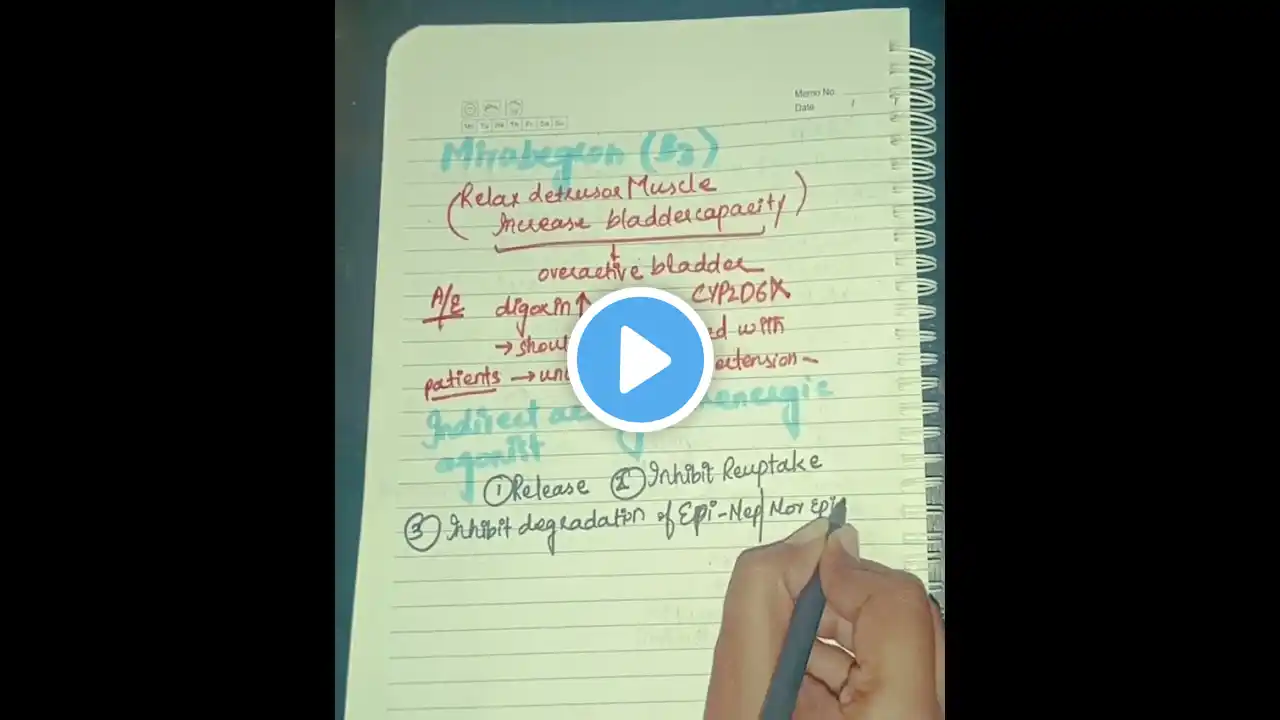 Memo No.
Date / /
Mo Tu We Th Fr Sa Su
Mirabegron (β3)
(Relax detrusor Muscle
Increase bladder capacity)
overactive bladder
A/E digoxin ↑ CYP2D6 X
→ with
patients →
Indirect
agonist
① Release ② Inhibit Reuptake
③ Inhibit degradation of Epi-Nep/Nor Epi